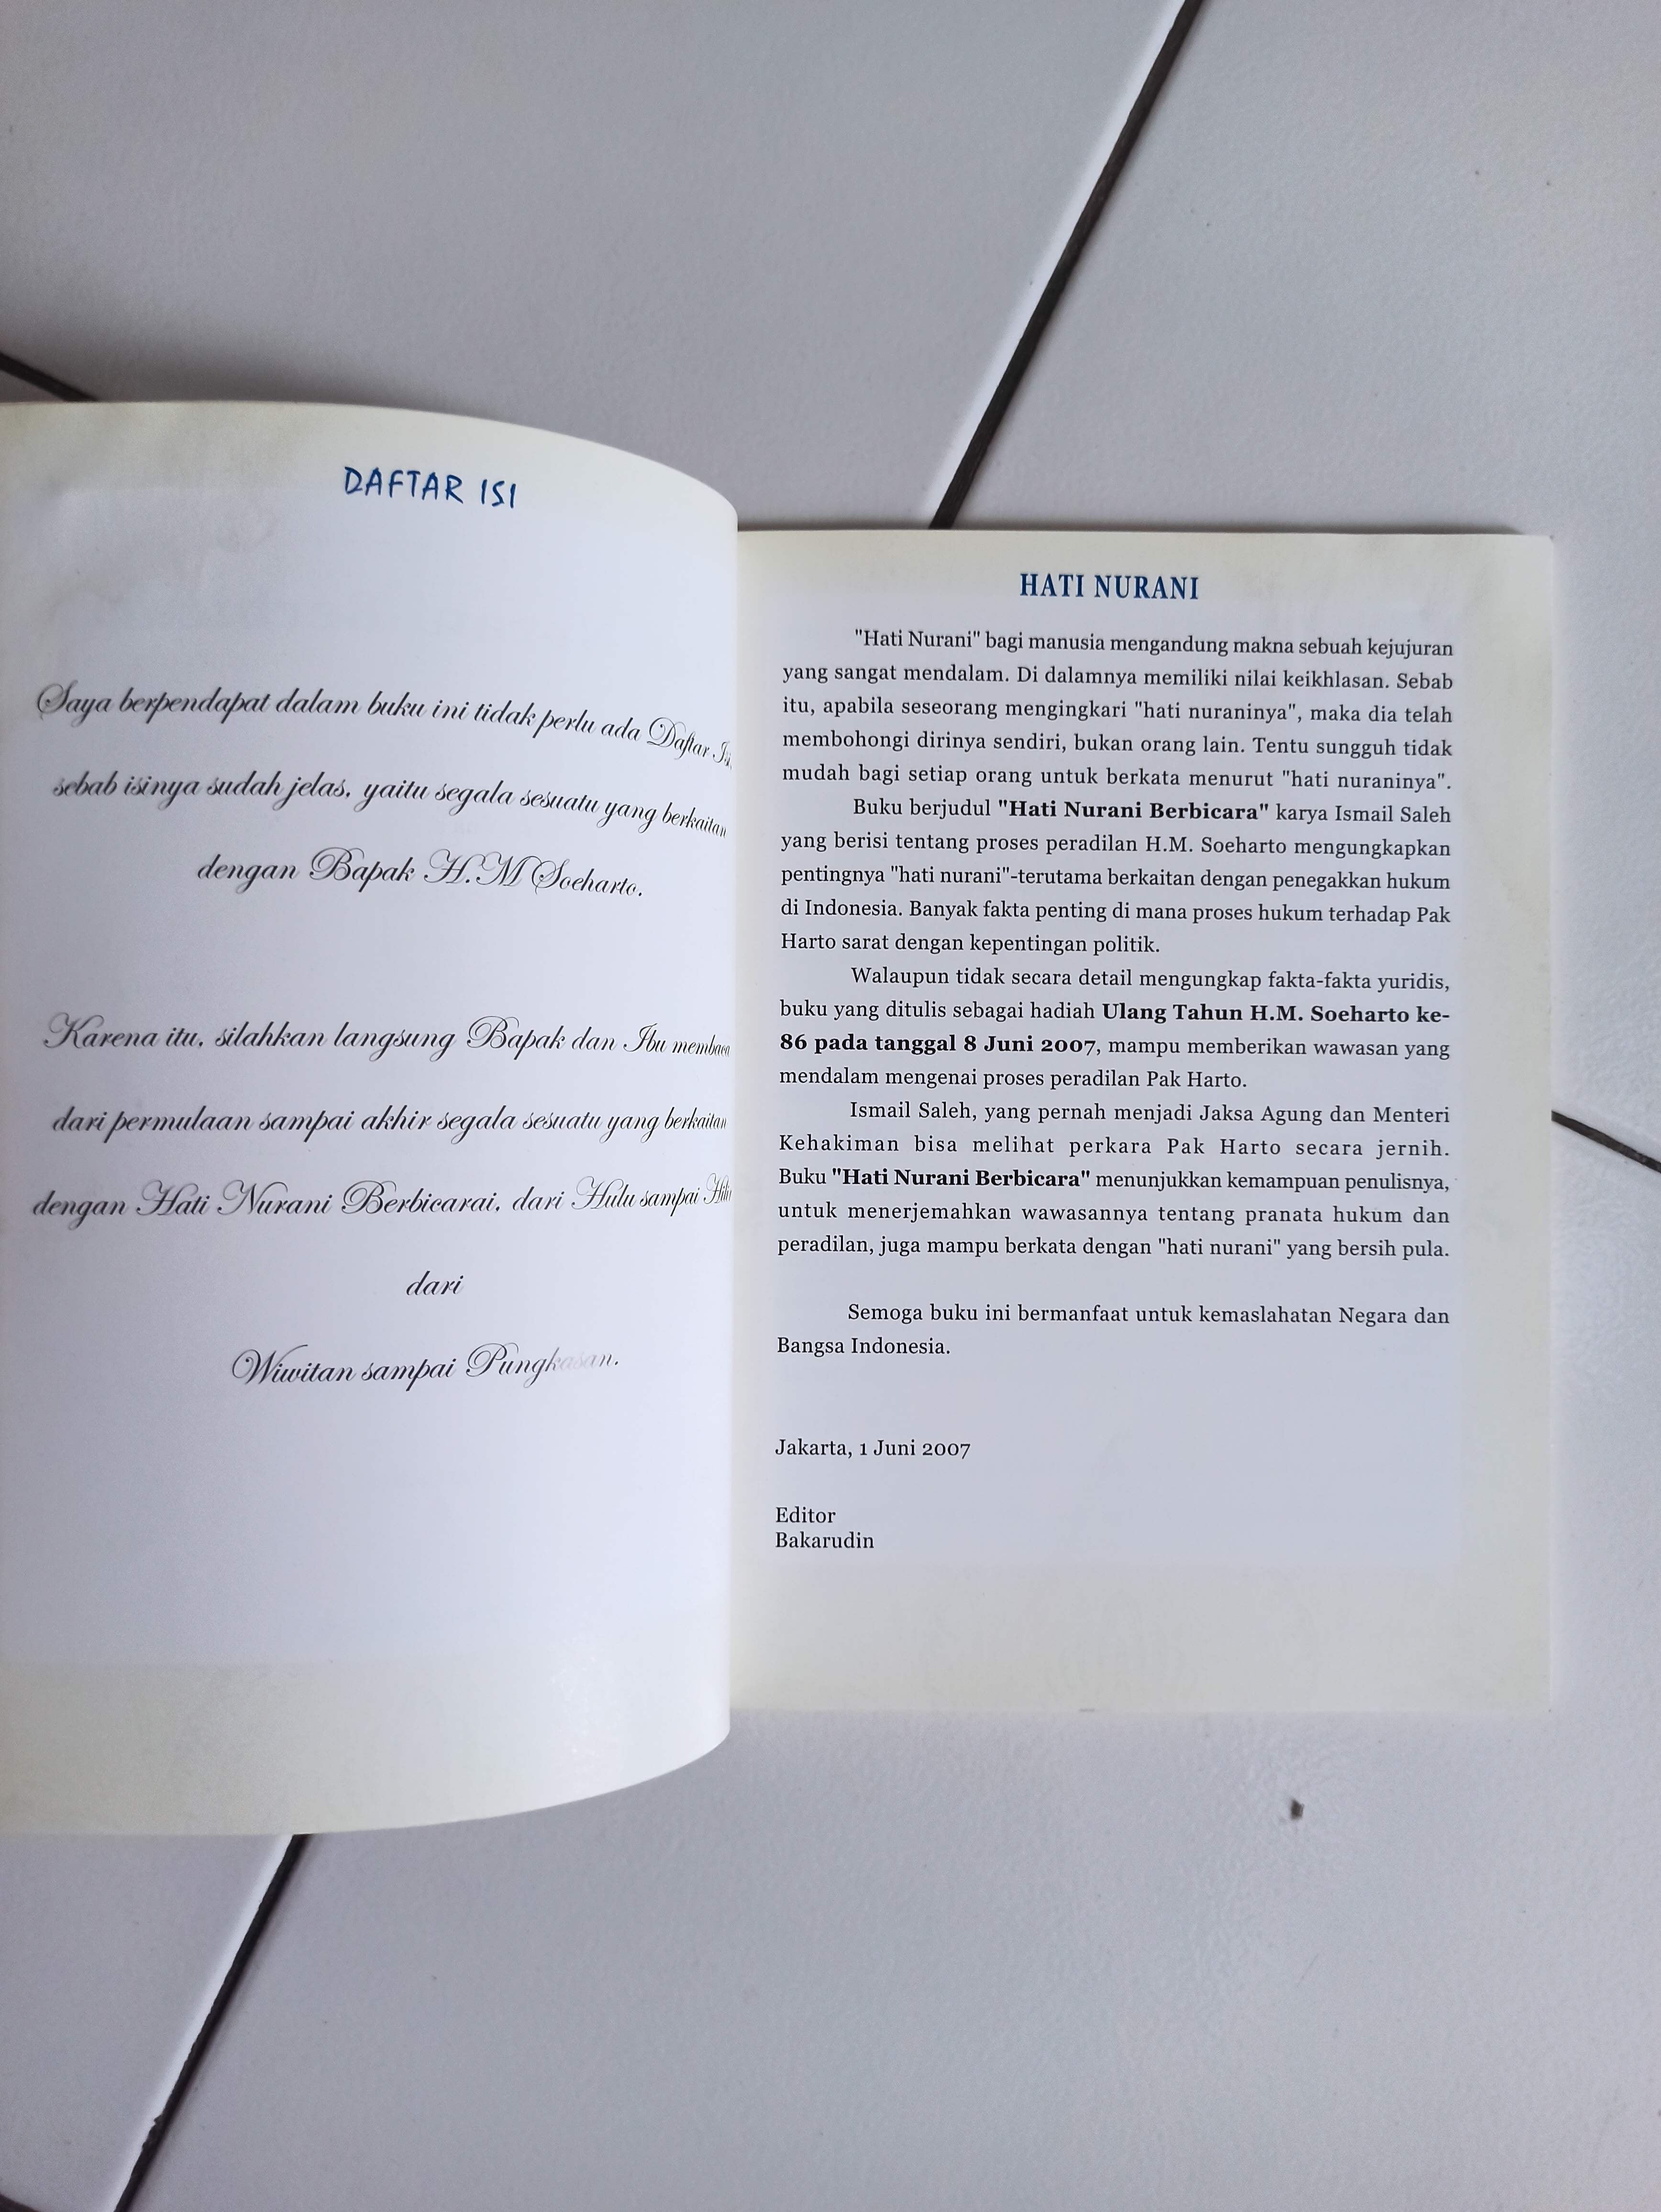 DAFTAR ISI
Saya berpendapat dalam buku ini tidak perlu ada Daftar Isi,
sebab isinya sudah jelas, yaitu segala sesuatu yang berkaitan
dengan Bapak H.M Soeharto.
Karena itu, silahkan langsung Bapak dan Ibu membaca
dari permulaan sampai akhir segala sesuatu yang berkaitan
dengan Hati Nurani Berbicarai, dari Hulu sampai
dari
Wiwitan sampai Pungkasan.
HATI NURANI
"Hati Nurani" bagi manusia mengandung makna sebuah kejujuran
yang sangat mendalam. Di dalamnya memiliki nilai keikhlasan. Sebab
itu, apabila seseorang mengingkari "hati nuraninya", maka dia telah
membohongi dirinya sendiri, bukan orang lain. Tentu sungguh tidak
mudah bagi setiap orang untuk berkata menurut "hati nuraninya".
Buku berjudul "Hati Nurani Berbicara" karya Ismail Saleh
yang berisi tentang proses peradilan H.M. Soeharto mengungkapkan
pentingnya "hati nurani"-terutama berkaitan dengan penegakkan hukum
di Indonesia. Banyak fakta penting di mana proses hukum terhadap Pak
Harto sarat dengan kepentingan politik.
Walaupun tidak secara detail mengungkap fakta-fakta yuridis,
buku yang ditulis sebagai hadiah Ulang Tahun H.M. Soeharto ke-
86 pada tanggal 8 Juni 2007, mampu memberikan wawasan yang
mendalam mengenai proses peradilan Pak Harto.
Ismail Saleh, yang pernah menjadi Jaksa Agung dan Menteri
Kehakiman bisa melihat perkara Pak Harto secara jernih.
Buku "Hati Nurani Berbicara" menunjukkan kemampuan penulisnya,
untuk menerjemahkan wawasannya tentang pranata hukum dan
peradilan, juga mampu berkata dengan "hati nurani" yang bersih pula.
Semoga buku ini bermanfaat untuk kemaslahatan Negara dan
Bangsa Indonesia.
Jakarta, 1 Juni 2007
Editor
Bakarudin